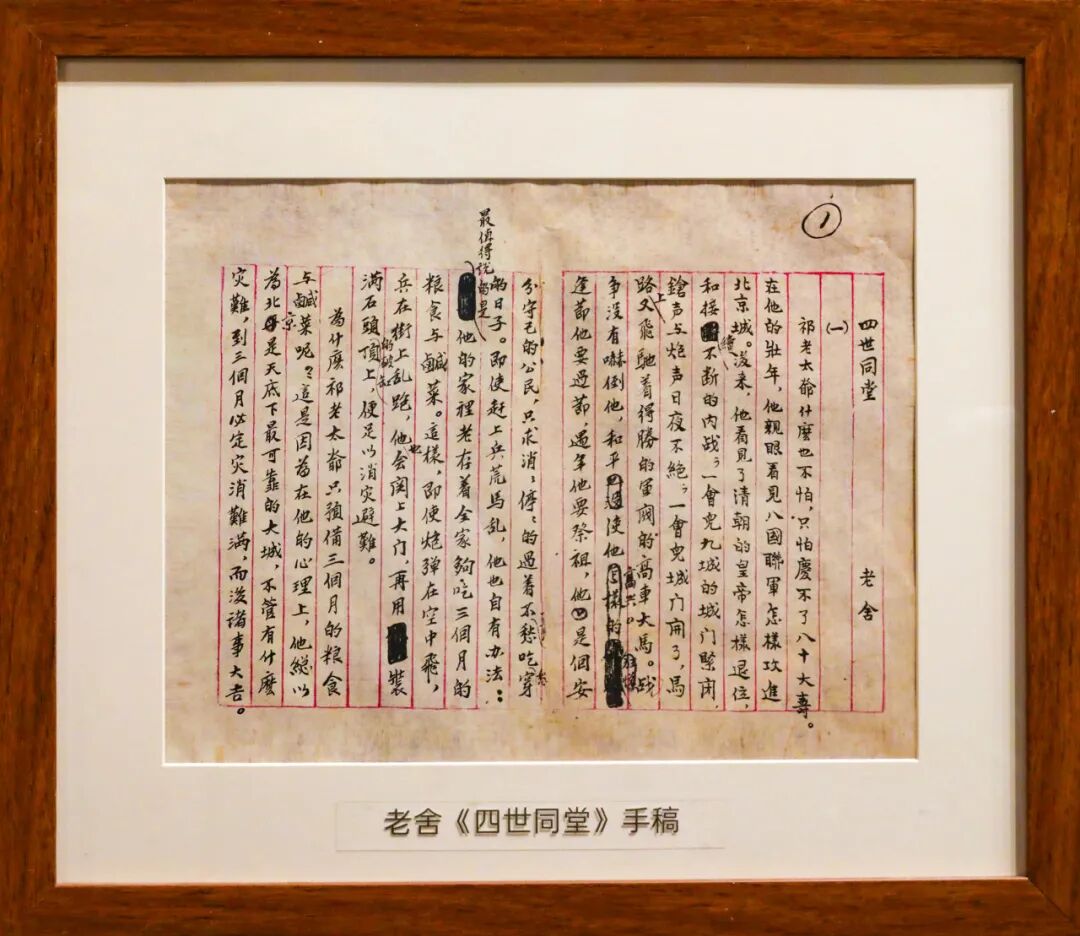 1
四世同堂 老舍
(一)
祁老太爺什麼也不怕，只怕慶不了八十大壽。
在他的壯年，他親眼看見八國聯軍怎樣攻進
北京城。後来，他看見了清朝的皇帝怎樣退位，
和接續不断的内战；一會兒九城的城门緊闭，
鎗声与炮声日夜不絶；一會兒城门開了，馬
路上又飛馳着得勝的軍閥的高車大馬。战
争没有嚇倒他，和平使他高興。
逢節他要過節，過年他要祭祖，他是個安
分守己的公民，只求消消停停的過着不愁吃穿
的日子。即使赶上兵荒馬乱，他也自有办法：
最值得说的是他的家裡老存着全家夠吃三個月的
粮食与鹹菜。這樣，即使炮弹在空中飛，
兵在街上乱跑，他也会関上大门，再用裝
满石頭的破缸頂上，便足以消灾避難。
為什麽祁老太爺只預備三個月的粮食
与鹹菜呢？這是因為在他的心理上，他總以
為北京是天底下最可靠的大城，不管有什麽
灾難，到三個月必定灾消難满，而後諸事大吉。
老舍《四世同堂》手稿